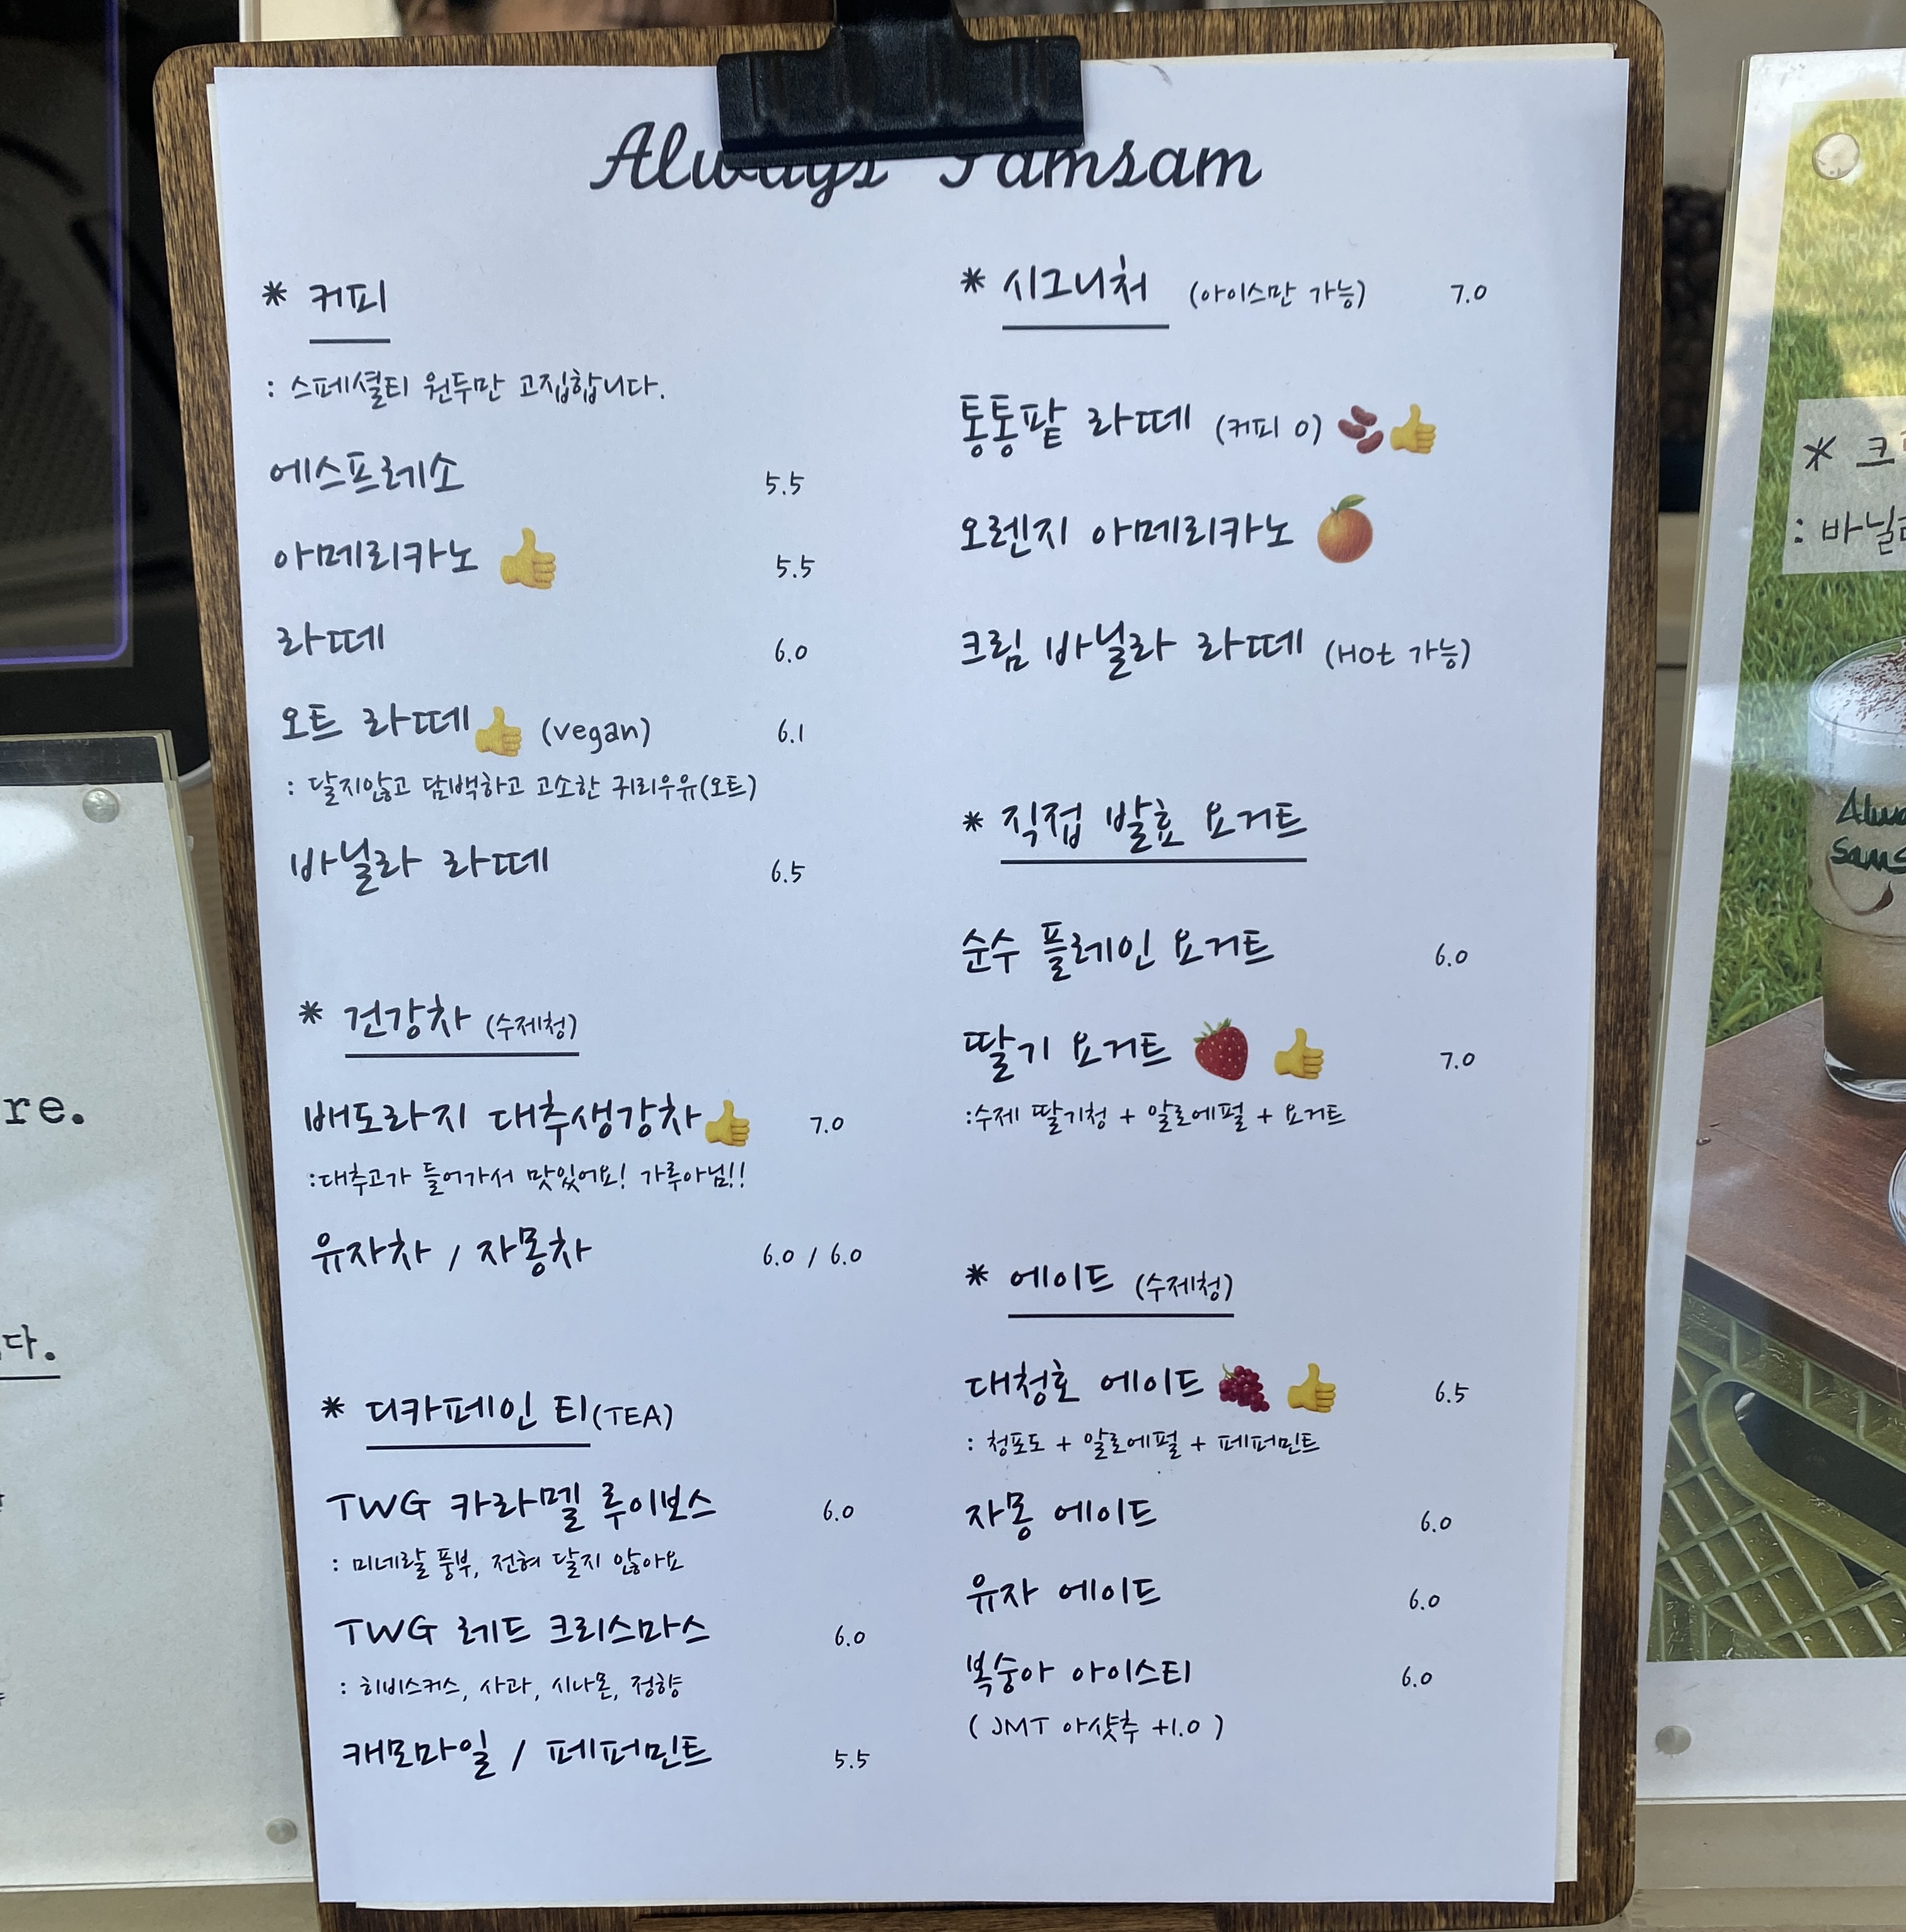 Always Samsam
* 커피
: 스페셜티 원두만 고집합니다.
에스프레소 5.5
아메리카노 👍 5.5
라떼 6.0
오트 라떼👍 (vegan) 6.1
: 달지않고 담백하고 고소한 귀리우유(오트)
바닐라 라떼 6.5
* 건강차 (수제청)
배도라지 대추생강차👍 7.0
:대추고가 들어가서 맛있어요! 가루아님!!
유자차 / 자몽차 6.0 / 6.0
* 디카페인 티(TEA)
TWG 카라멜 루이보스 6.0
: 미네랄 풍부, 전혀 달지 않아요
TWG 레드 크리스마스 6.0
: 히비스커스, 사과, 시나몬, 정향
캐모마일 / 페퍼민트 5.5
* 시그니처 (아이스만 가능) 7.0
통통팥 라떼 (커피 O) 🫘👍
오렌지 아메리카노 🍊
크림 바닐라 라떼 (Hot 가능)
* 직접 발효 요거트
순수 플레인 요거트 6.0
딸기 요거트 🍓 👍 7.0
:수제 딸기청 + 알로에펄 + 요거트
* 에이드 (수제청)
대청호 에이드 🍇 👍 6.5
: 청포도 + 알로에펄 + 페퍼민트
자몽 에이드 6.0
유자 에이드 6.0
복숭아 아이스티 6.0
( JMT 아샷추 +1.0 )
re.
다.
* 크
: 바닐라